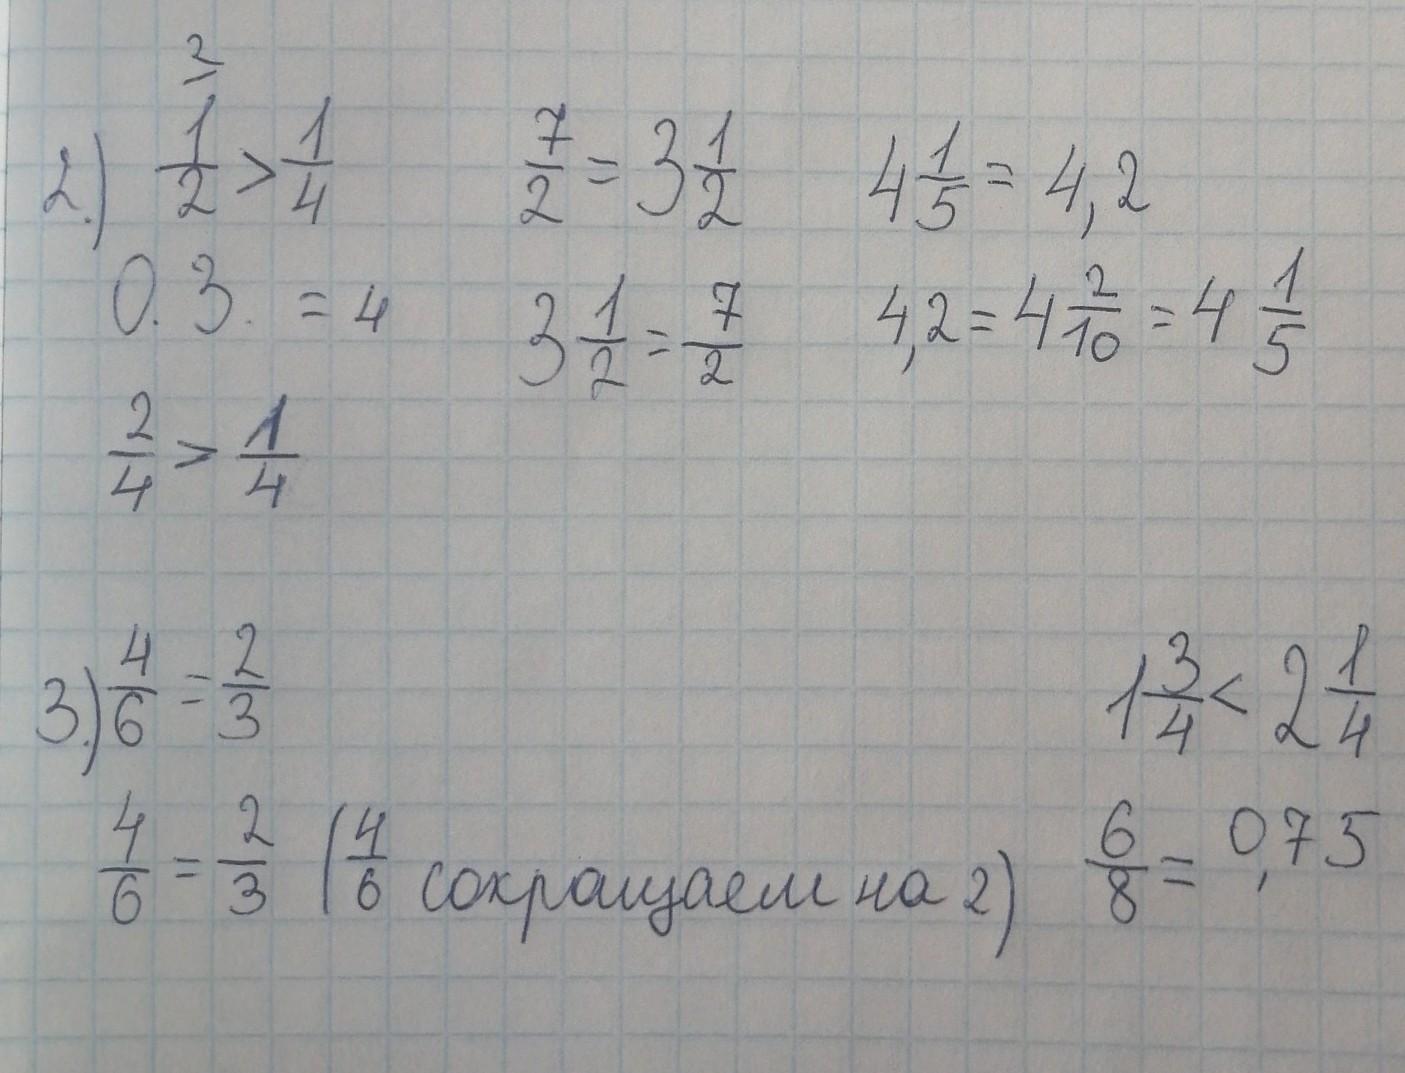 2
2.) 1/2 > 1/4 7/2 = 3 1/2 4 1/5 = 4,2
О.З. = 4 3 1/2 = 7/2 4,2 = 4 2/10 = 4 1/5
2/4 > 1/4
3.) 4/6 = 2/3 1 3/4 < 2 1/4
4/6 = 2/3 (4/6 сокращаем на 2) 6/8 = 0,75